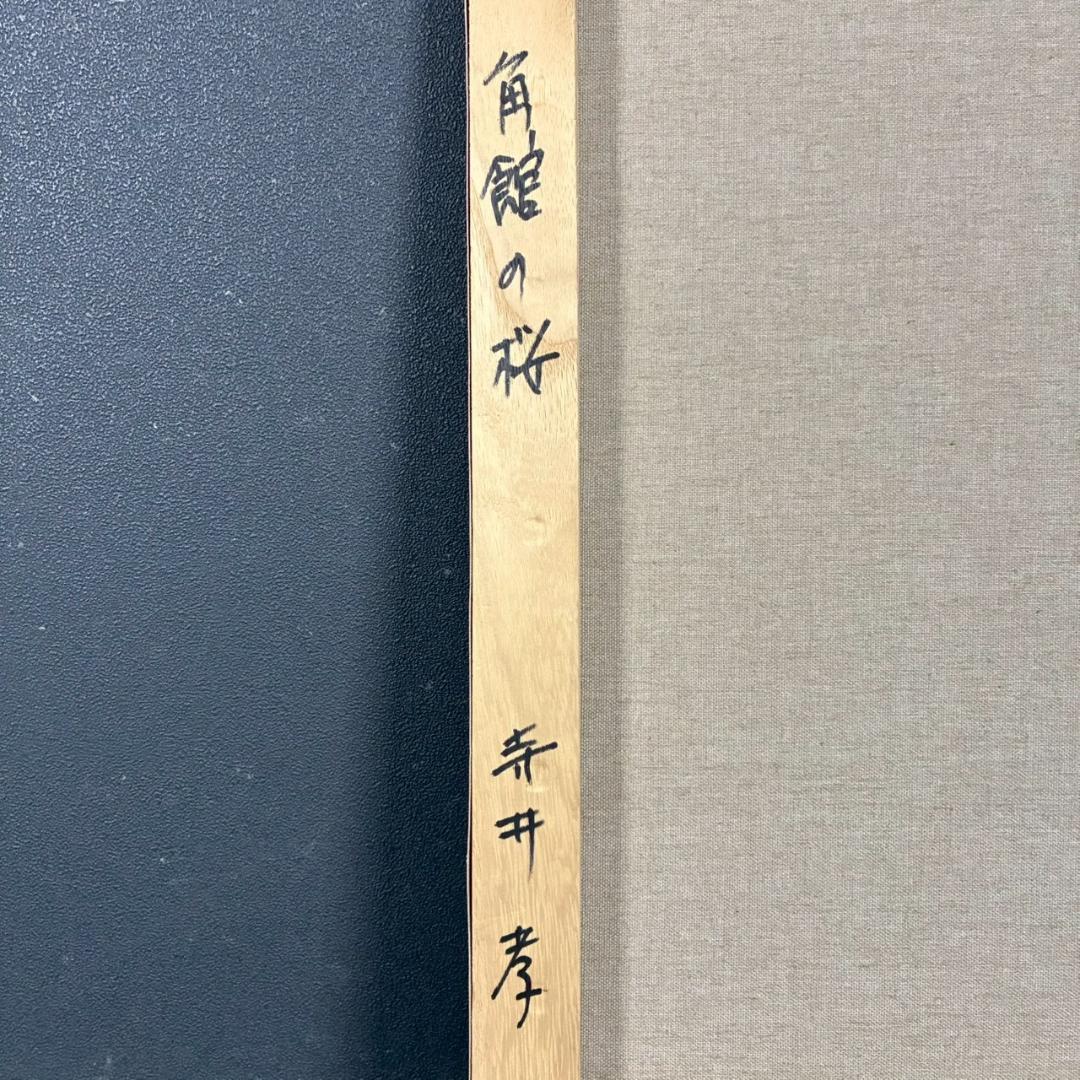 角館の桜
寺井孝